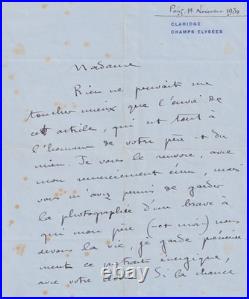 Paris, 14 Novembre 1930
CLARIDGE
CHAMPS ELYSÉES
Madame
Rien ne pouvait me
toucher mieux que l'envoi de
cet article, qui est tout à
l'honneur de votre père et du
mien. Je vous le renvoie, avec
mon remerciement ému, mais
vous m'avez permis de garder
la photographie d'un brave à
qui mon père (et moi) nous
devons la vie, je garde
ce portrait énergique,
avec votre Si la chance